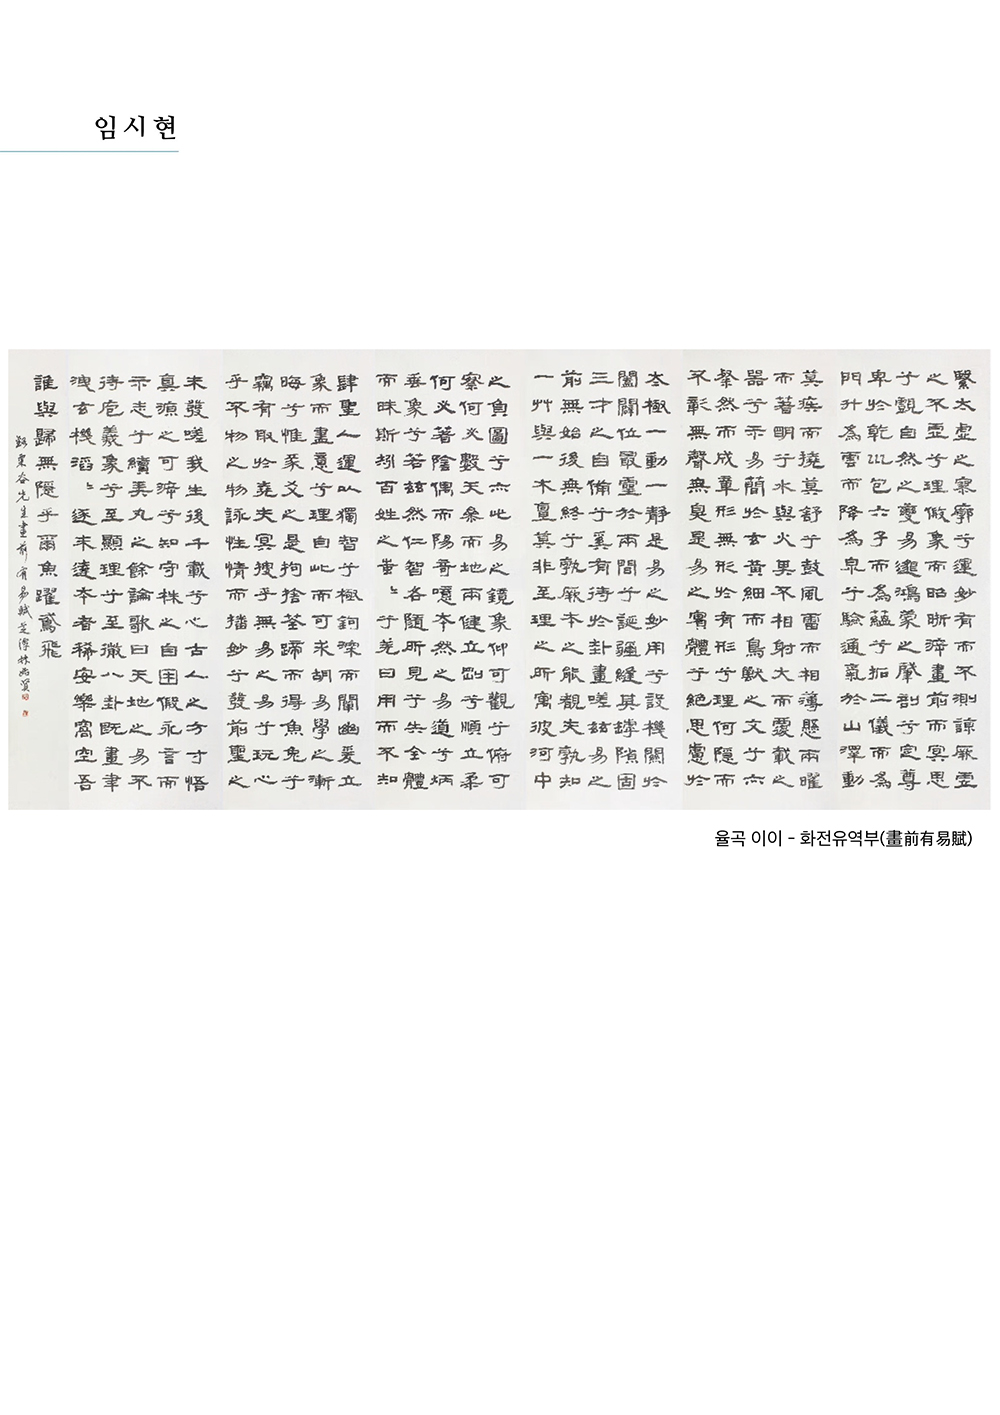 임시현
繄太虛之寥廓兮運妙有而不測諒厥靈
之不歪兮理倣象而昭晣渧畫前而冥思
兮覿自然之變易邈鴻蒙之肇剖兮定尊
卑於乾巛包六子而為蘊兮拓二儀而為
門升為雲而降為泉兮驗通氣於山澤動
莫疾而撓莫舒兮鼓風雷而相薄懸兩曜
而著明兮水與火異不相射大而覆載之
器兮示易簡於玄黃細而鳥獸之文兮亦
粲然而成章形無形於有形兮理何隱而
不彰無聲無臭是易之實體兮絕思慮於
太極一動一靜是易之妙用兮設機關於
闔闢位最靈於兩間兮誕彌縫其罅隙固
三才之自備兮奚有待於卦畫嗟茲易之
前無始後無終兮孰厥本之能覩夫孰知
一艸與一木亶莫非至理之所寓彼河中
之負圖兮亦此易之鏡象仰可觀兮俯可
察何必數天參而地兩健立剛兮順立柔
何必著陰偶而陽奇噫本然之易道兮炳
垂象兮若茲然仁智各隨所見兮失全體
而昧斯矧百姓之蚩〻兮羌日用而不知
肆聖人運以獨智兮極鉤深而闡幽爰立
象而畫意兮理自此而可求胡易學之漸
晦兮惟彖爻之是拘捨筌蹄而得魚兔兮
竊有取於堯夫冥搜乎無易之易兮玩心
乎不物之物詠性情而播妙兮發前聖之
未發嗟我生後千載兮心古人之方寸悟
真源之可渧兮知守株之自困假永言而
示志兮續弄丸之餘論歌曰天地之易不
待庖羲象兮至顯理兮至微八卦既畫聿
洩玄機滔〻逐末達本者稀安樂窩空吾
誰與歸無隱乎爾魚躍鳶飛
錄栗谷先生畫前有易賦
율곡 이이 - 화전유역부(畫前有易賦)